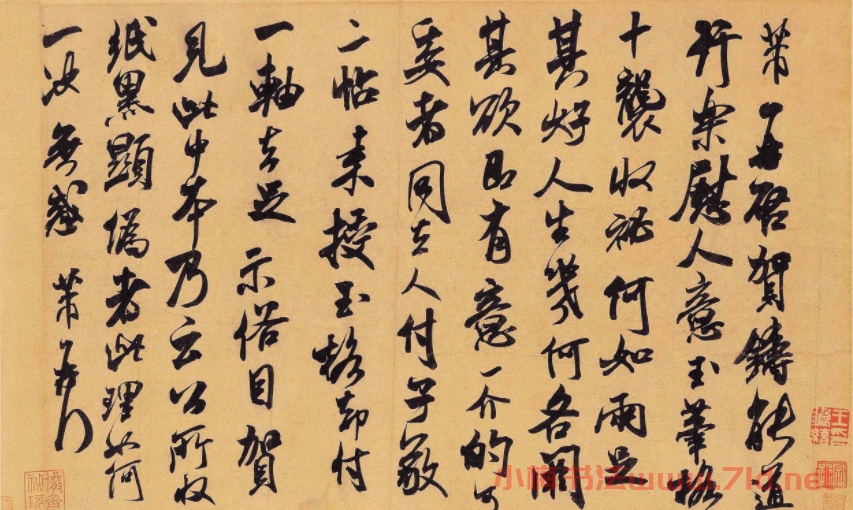 芾再启贺铸能道
行樂慰人意玉筆格
十襲收秘何如兩足
其好人生幾何各閼
其欲即有意一介的可
委者同去人付子敬
二帖来授玉格却付
一軸去足示俗目賀
見此中本乃云公所收
紙黑顯偽者此理如何
一決無惑芾頓
小楷书法www.7kt.net